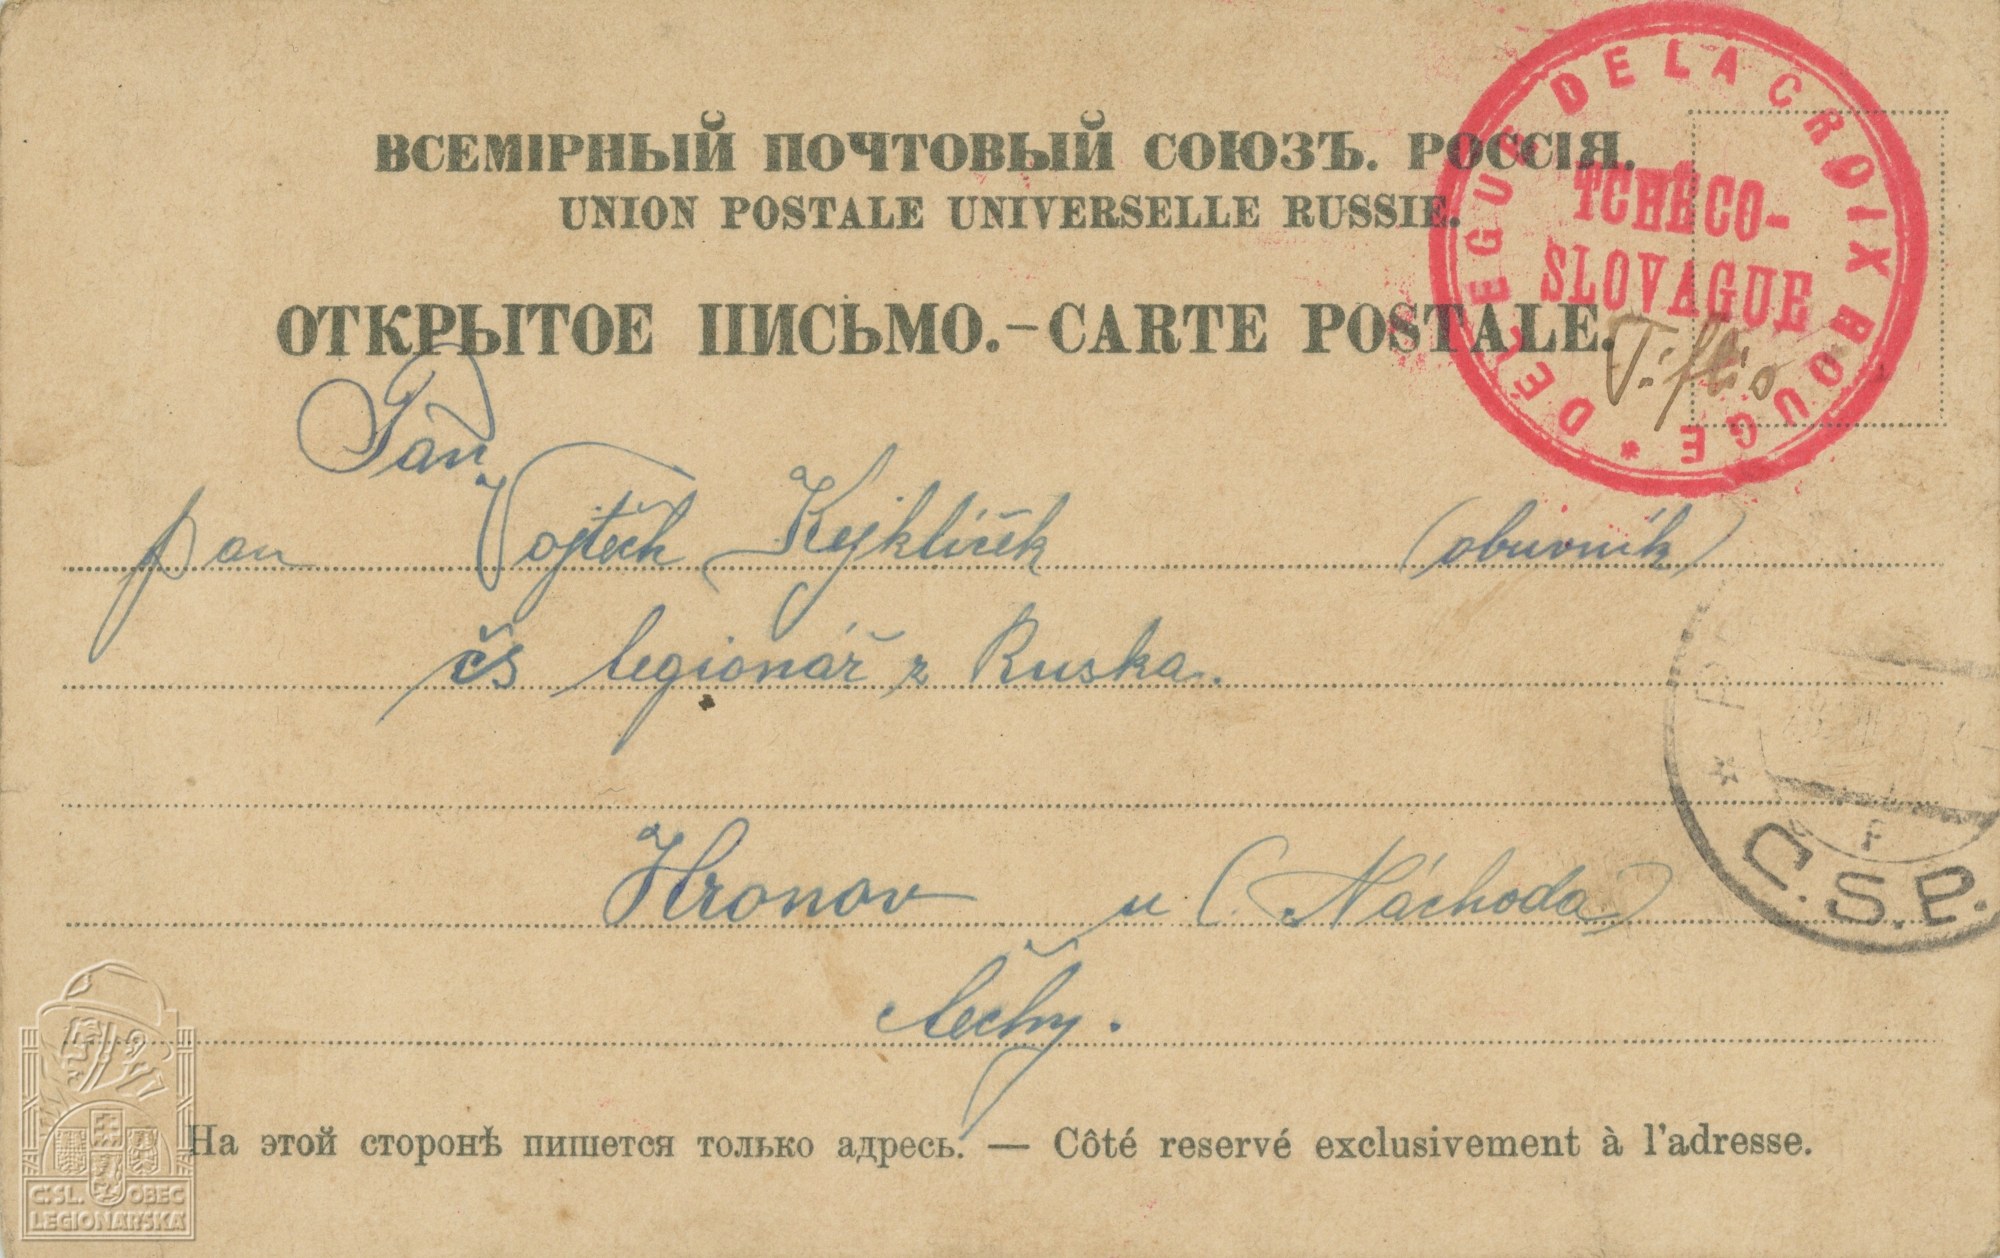 ВСЕМІРНЫЙ ПОЧТОВЫЙ СОЮЗЪ. РОССІЯ.
UNION POSTALE UNIVERSELLE RUSSIE.
ОТКРЫТОЕ ПИСЬМО.-CARTE POSTALE.
DÉLÉGUÉ DE LA CROIX ROUGE *
TCHÉCO-
SLOVAGUE
Tiflis
Pan
pan Vojtěch Kejklíček (obuvník)
čs legionář z Ruska.
Hronov u (Náchoda)
Čechy.
Č.S.P.
На этой сторонѣ пишется только адресъ. — Côté reservé exclusivement à l'adresse.
ČSL. OBEC
LEGIONÁŘSKÁ